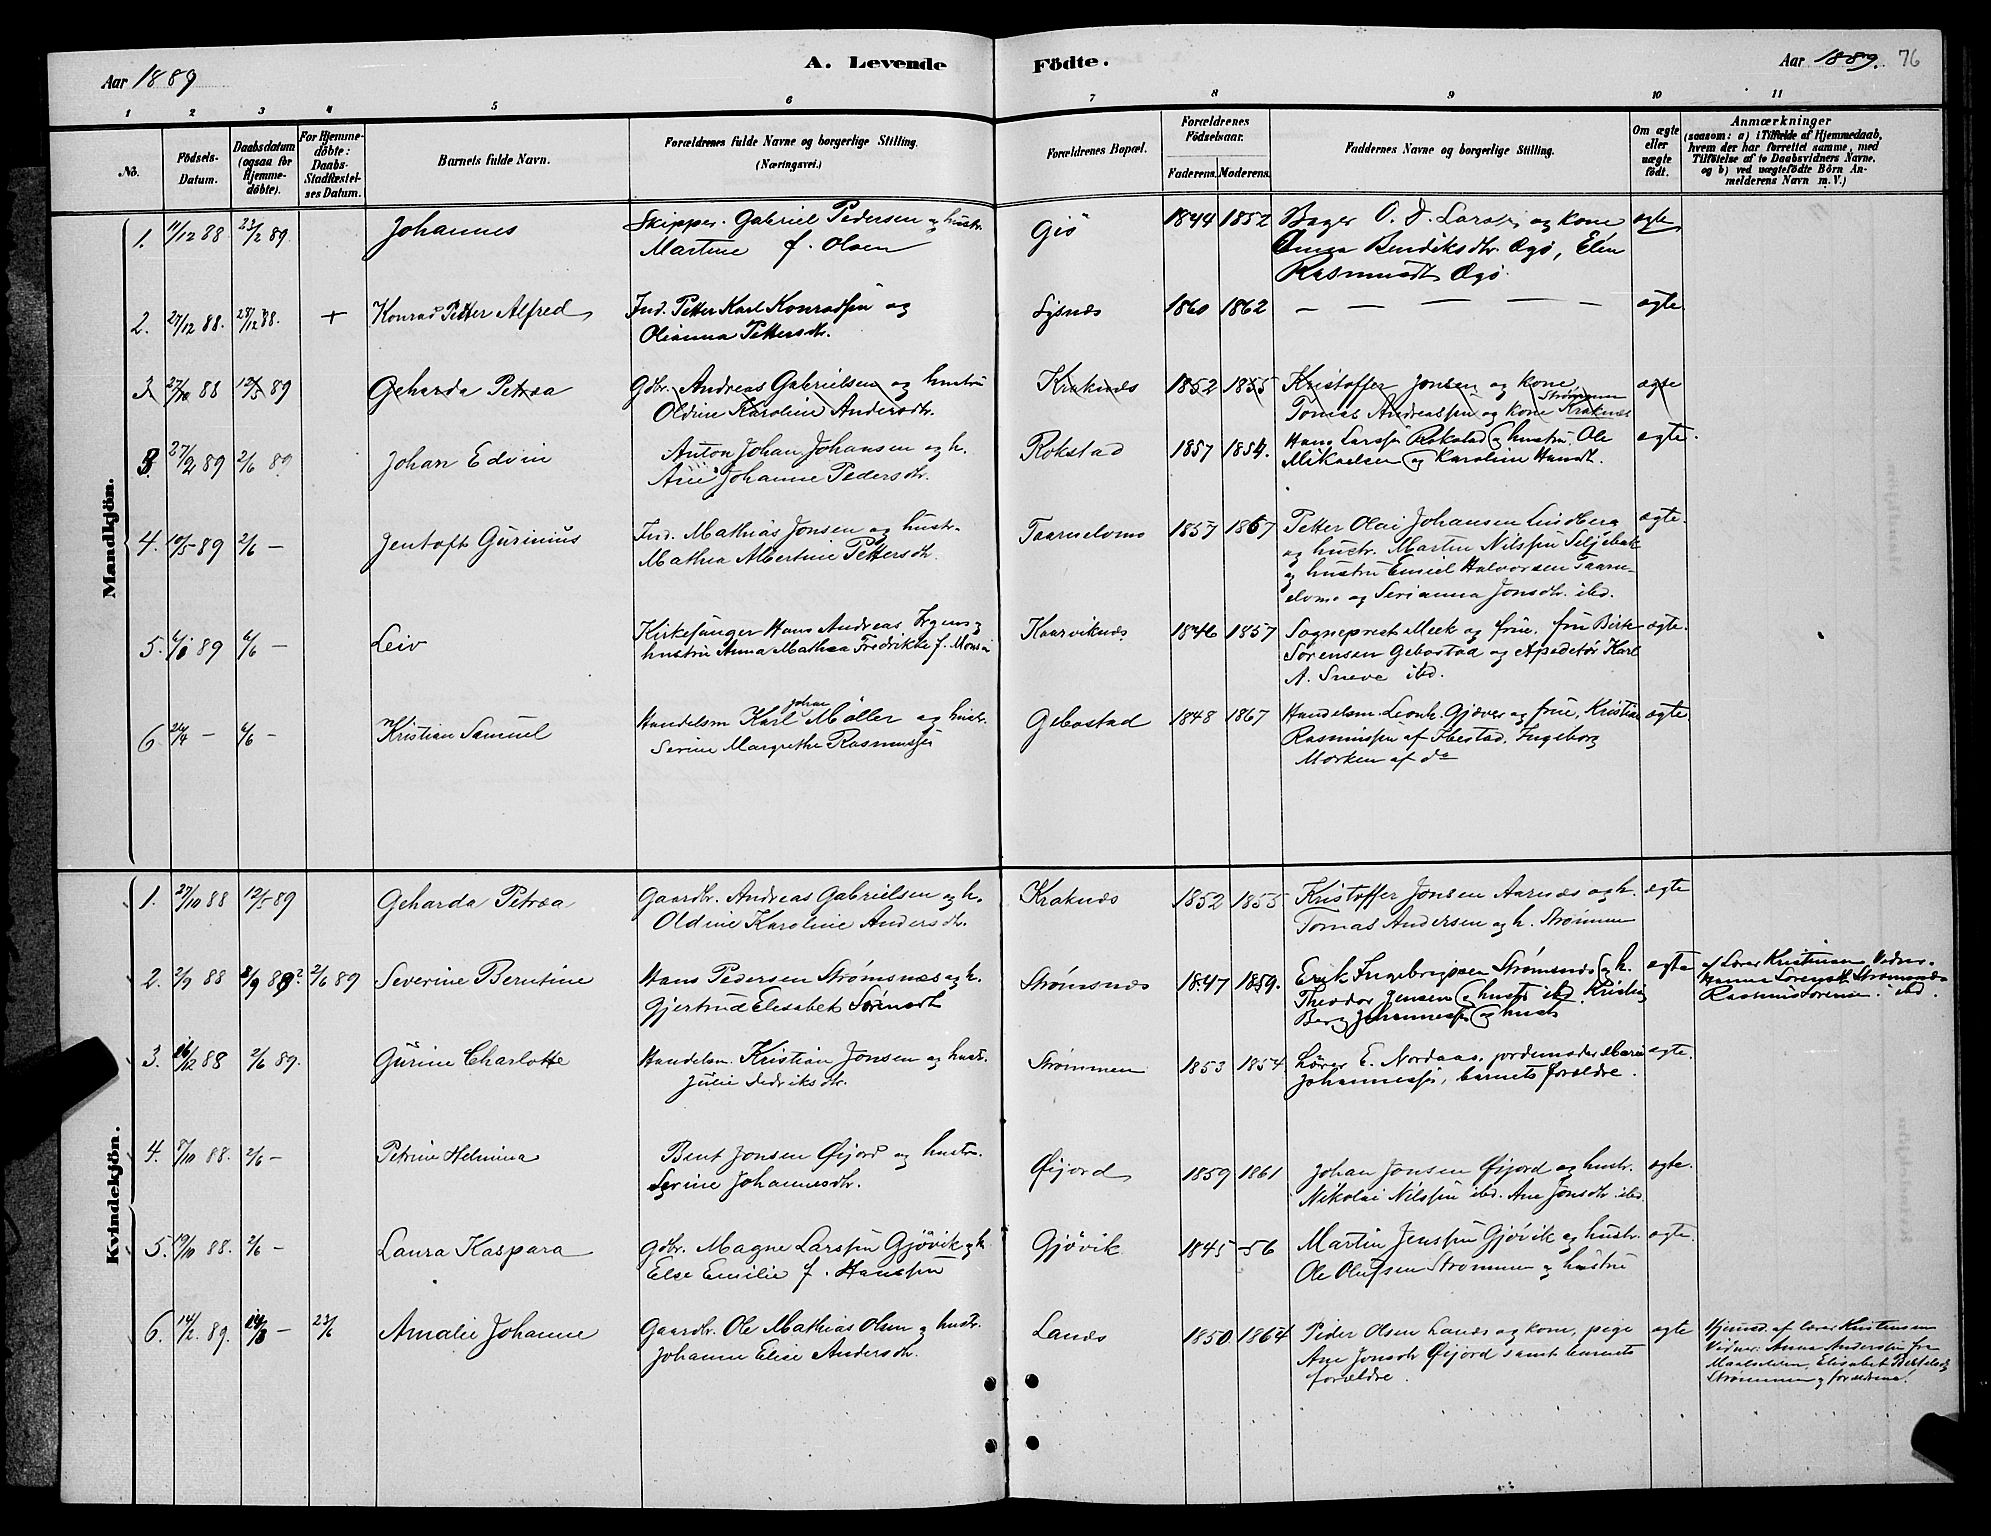 Aar 1889
A. Levende
Födte.
Aar 1889. 76
1 2 3 4 5 6 7 8 9 10 11
No.
Födsels-Datum.
Daabsdatum (ogsaa for Hjemme-döbte).
For Hjemme-döbte: Daabs-Stadfæstel-ses Datum.
Barnets fulde Navn.
Forældrenes fulde Navne og borgerlige Stilling.
(Næringsvei.)
Forældrenes Bopæl.
Forældrenes Födselsaar.
Faderens. Moderens.
Faddernes Navne og borgerlige Stilling.
Om ægte eller uægte födt.
Anmærkninger
(saasom: a) i Tilfælde af Hjemmedaab, hvem der har forrettet samme, med Tilföielse af to Daabsvidners Navne, og b) ved uægtefödte Börn An-melderens Navn m. V.)
Mandkjön.
1. 11/12 88 23/2 89. Johannes Skipper Gabriel Pedersen og hustr. Giö 1844 1852 Bager O. J. Larsen og kone ægte
Martine f. Olsen Bendiksdtr. Ægö, Elen
Rasmusdt Ægö.
2. 27/12 88. 28/12 88. + Konrad Petter Alfred Ind. Petter Karl Konradsen og Lysnæs 1860 1862 — — — — — ægte.
Olianna Pettersdtr.
3 27/10 88 12/5 89 Geharda Petræa Gbr. Andreas Gabrielsen og hustru Kraknæs 1852 1855 Kristoffer Jonsen og kone ægte
Oldine Karoline Andersdtr. Strømmen
Tomas Andreassen og kone Kraknæs
3. 27/2 89 2/6 89 Johan Edvin Anton Johan Johansen og h. Rokstad 1857 1854. Hans Larssen Rokstad og hustru. Ole ægte.
Johanne Pedersdtr. Mikaelsen og Karoline Hansdt.
4. 10/5 89 2/6 — Jentoft Gurinius Ind. Mathias Jonsen og hustr. Taarnelvmo 1857 1867 Petter Olai Johansen Lindberg ægte.
Mathea Albertine Pettersdtr. og hustr. Martin Nilssen Seljebak
og hustru Emiel Halvorsen Taarn-
elvmo og Serianna Jonsdtr. ibd.
5. 89 6/6 — Leiv Kirkesanger Hans Andreas Irgens og Kaarviknæs 1846 1857 Sogneprest Meek og frue, fru Birte ægte.
hustru Anna Mathea Fredrikke f. Monsen Sörensen Gebostad og
A. Sneve ibd.
6 24/4 — 6/6 — Kristian Samuel Handelsm Karl Johan Möller og hustr. Gebostad 1848 1867 Handelsm. Leonh. Gjæver og frue, Kristian ægte
Serine Margrethe Rasmussen Rasmussen af Ibestad, Ingeborg
Morken af do
Kvindekjön.
1. 27/10 88 12/5 89 Geharda Petræa Gaardbr. Andreas Gabrielsen og h. Kraknæs 1852 1855 Kristoffer Jonsen Aarnæs og h. ægte
Oldine Karoline Andersdtr. Tomas Andersen og h. Strömmen
2. 2/9 88 8/9 88? 2/6 89 Severine Berntine Hans Pedersen Strömsnæs og h. Strømsnæs 1847 1859. Erik Ingebrigtsen Strømsnæs og h. ægte af Lærer Kristensen Vidner.
Gjertrud Elisabet Sörensdt Theodor Jensen og hustr ibd. Kristian Hanna Lorensdt Strømsnæs
Berg Johannessen og hustr ibd.
3. 16/12 88 2/6 89. Gurine Charlotte Handelsm. Kristian Jonsen og hustr. Strömmen 1853 1854 Lærer E. Nordaas, jordemoder Marie ægte.
Julie Dedriksdtr. Johannessen, barnets forældre.
4. 8/10 88. 2/6 — Petrine Helmina Bent Jonsen Øijord og hustr. Øijord 1859 1861 Johan Jonsen Øijord og hustr. ægte.
Serine Johannesdtr. Nikolai Nilssen ibd. Ane Jonsdtr. ibd.
5. 19/10 88. 2/6 — Laura Kaspara Gbr. Magne Larssen Gjövik og h. Gjövik 1845 -56 Martin Jenssen Gjövik og hustr. ægte.
Else Emilie f. Hanssen Ole Olufsen Strömmen og hustru
6. 14/2 89. 14/3 — 23/6 Amalie Johanne Gaardbr. Ole Mathias Olsen og hustr. Lanæs 1850 1864 Peder Olsen Lanæs og kone, pige ægte Hjemd. af lærer Kristensen
Johanne Elise Andersdtr. Ane Jonsdtr Øijord samt barnets Vidner: Anna Andersen fra
forældre. Maalselven, Elisabet
Strømmen og forældrene.